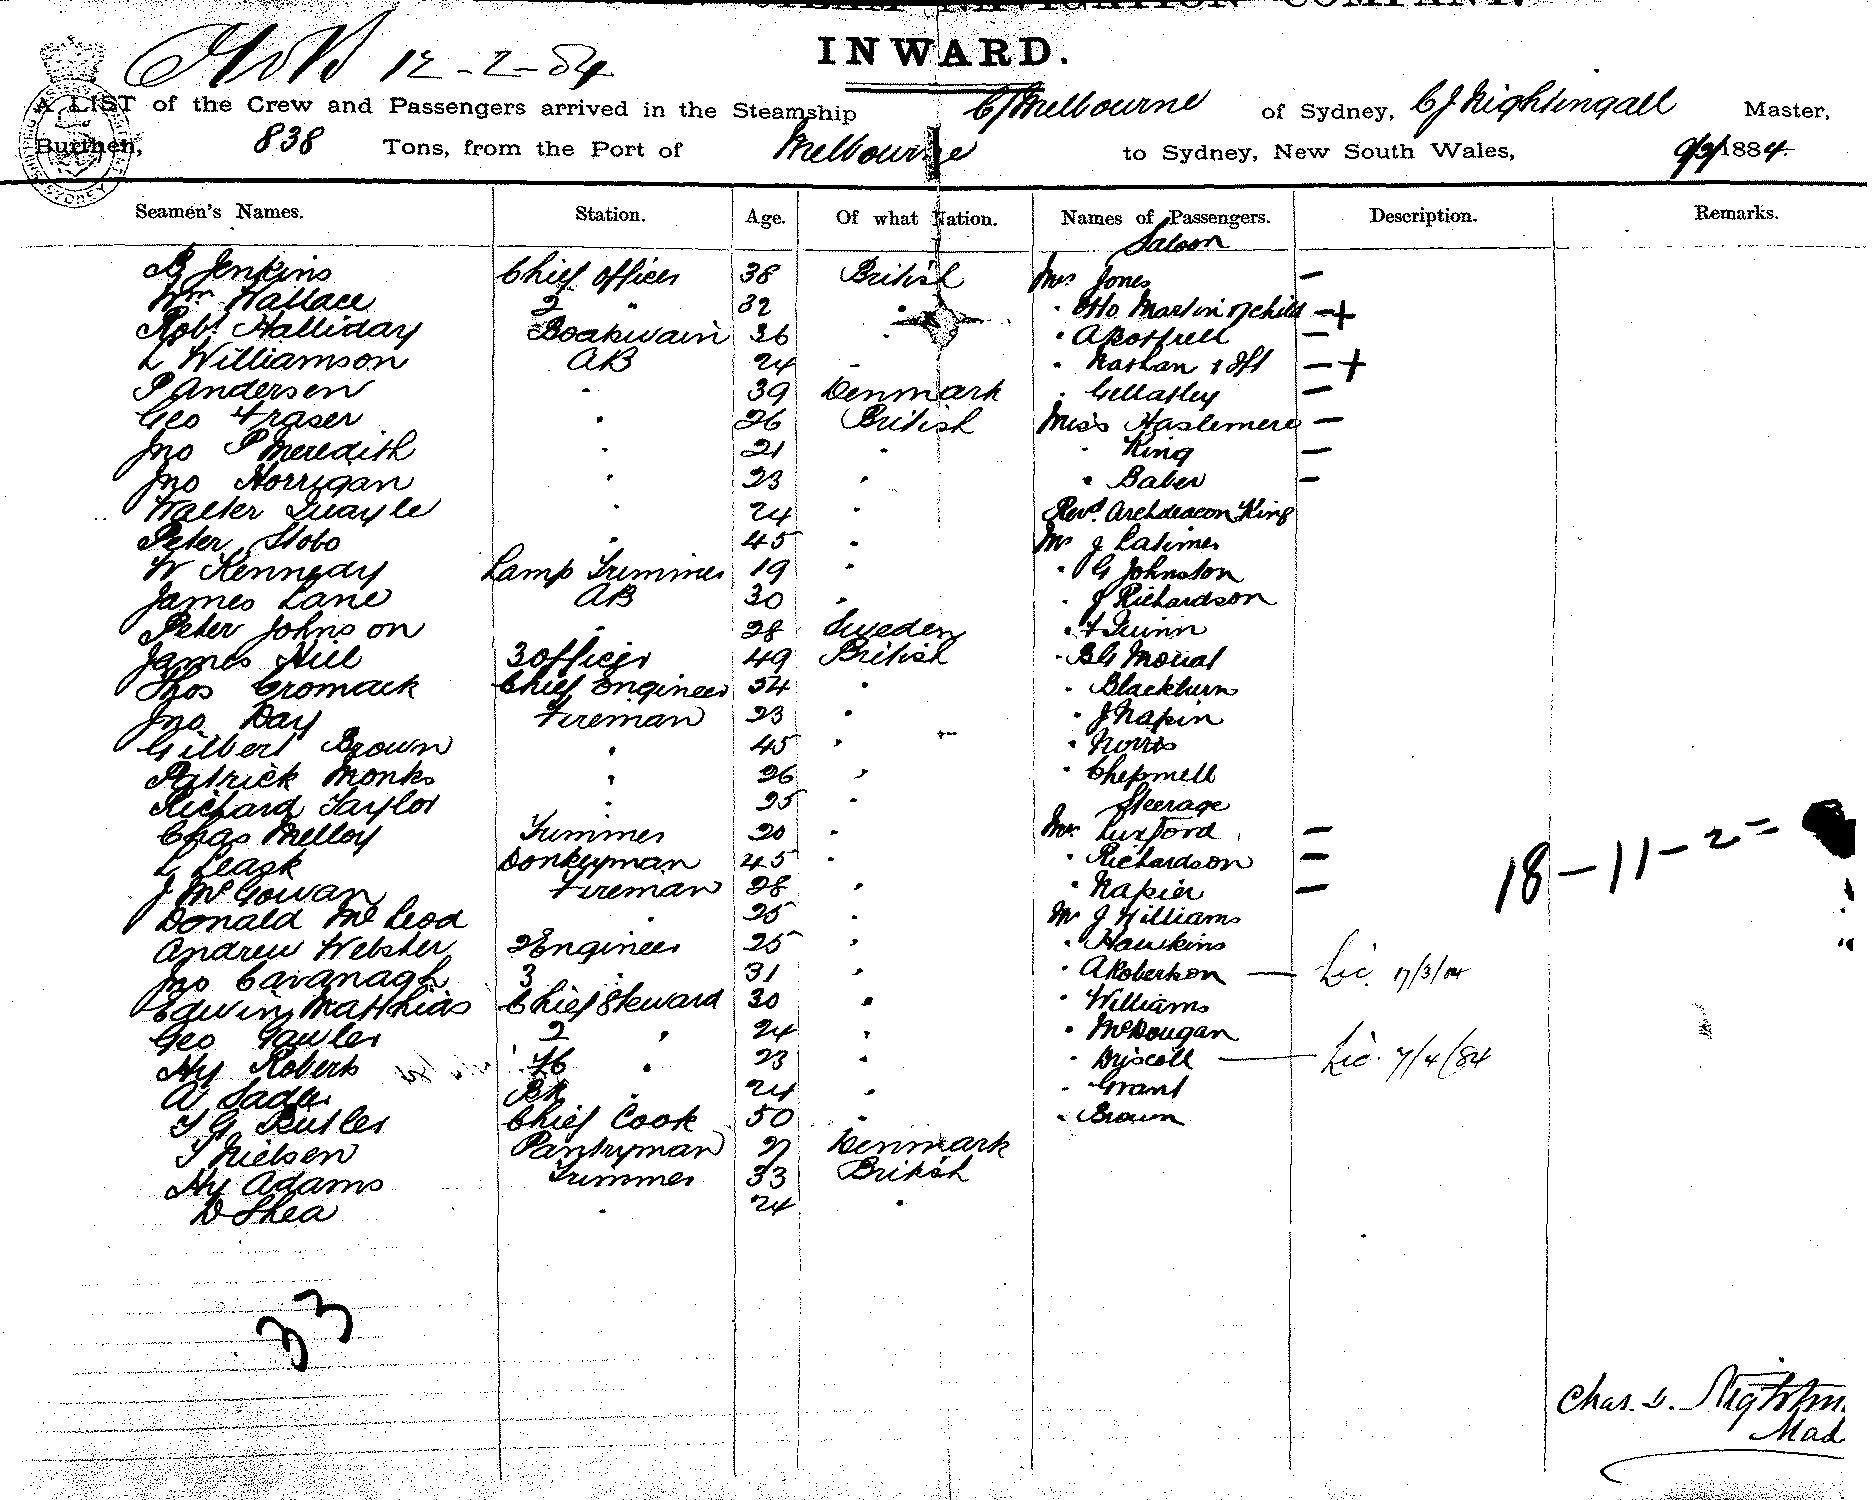 STEAM NAVIGATION COMPANY.
12-2-84
INWARD.
A LIST of the Crew and Passengers arrived in the Steamship C/Melbourne of Sydney, CJ Nightingall Master,
Burthen, 838 Tons, from the Port of Melbourne to Sydney, New South Wales, 9/2/1884
Seamen's Names. Station. Age. Of what Nation. Names of Passengers. Description. Remarks.
Saloon
G Jenkins Chief officer 38 British Mrs Jones —
Wm Wallace 2 " 32 " " Otto Martin & child — +
Robt Halliday Boatswain 36 " " A Bottrell —
L Williamson AB 24 " " Nathan & Ift — +
P Andersen " 39 Denmark " Gellatley —
Geo Fraser " 26 British Miss Haslemere —
Jno P Meredith " 21 " " King —
Jno Horrigan " 23 " " Baber —
Walter Quayle " 24 " Revd. Archdeacon King
Peter Stobo " 45 " Mr J Latimer
W Kennedy Lamp Trimmer 19 " " G Johnston
James Lane AB 30 " " J Richardson
Peter Johnson " 28 Sweden " F Quinn
James Hill 3 officer 49 British " BG Mouat
Thos Cromack Chief Engineer 34 " " Blackburn
Jno Day Fireman 23 " " J Napier
Gilbert Brown " 45 " " Norris
Patrick Monks " 26 " " Chepmell
Richard Taylor " 25 " Steerage
Chas Melloy Trimmer 20 " Mrs Luxford —
L Leask Donkeyman 45 " " Richardson —
J McGowan Fireman 28 " " Napier —
Donald McLeod " 25 " Mr J Williams
Andrew Webster 2 Engineer 25 " " Hawkins
Jno Cavanagh 3 " 31 " " A Robertson — Lic. 17/3/84
Edwin Matthias Chief Steward 30 " " Williams
Geo Fowler 2 " 24 " " McDougan
Hy Roberts " 23 " " Driscoll — Lic. 7/4/84
A Sadler " 24 " " Grant
T G Butler Chief Cook 50 " " Brown
T Nielsen Pantryman 27 Denmark
Hy Adams Trimmer 33 British
D Shea " 24 "
18-11-2=
33
Chas. D.